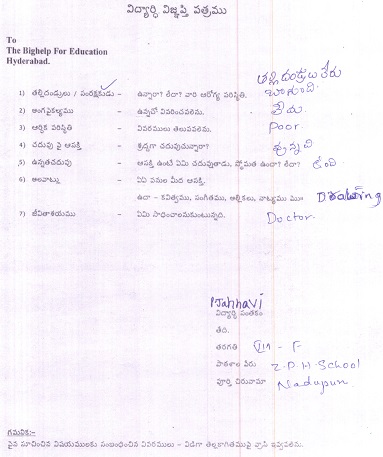 విద్యార్థి విజ్ఞప్తి పత్రము
To
The Bighelp For Education
Hyderabad.
తల్లిదండ్రులు లేరు
1) తల్లిదండ్రులు / సంరక్షకుడు – ఉన్నారా? లేదా? వారి ఆరోగ్య పరిస్థితి. బాగుంది
2) అంగవైకల్యము – ఉన్నచో వివరించవలెను. లేదు
3) ఆర్థిక పరిస్థితి – వివరములు తెలుపవలెను. Poor
4) చదువు పై ఆసక్తి – శ్రద్ధగా చదువుచున్నారా? ఉన్నది
5) ఉన్నతచదువు – ఆసక్తి ఉంటే ఏమి చదువుతాడు, స్తోమత ఉందా? లేదా? ఉంది
6) అలవాట్లు – ఏఏ పనుల మీద ఆసక్తి.
ఉదా – కవిత్వము, సంగీతము, ఆటలు, నాట్యము
7) జీవితాశయము – ఏమి సాధించాలనుకుంటున్నది. Doctor.
P Jahnavi
విద్యార్థి సంతకం
తేది.
తరగతి VIII - F
పాఠశాల పేరు Z.P.H-School
పూర్తి చిరునామా
గమనిక:-
పైన సూచించిన విషయములకు సంబంధించిన వివరములు – విడిగా తెల్లకాగితముపై వ్రాసి ఇవ్వవలెను.